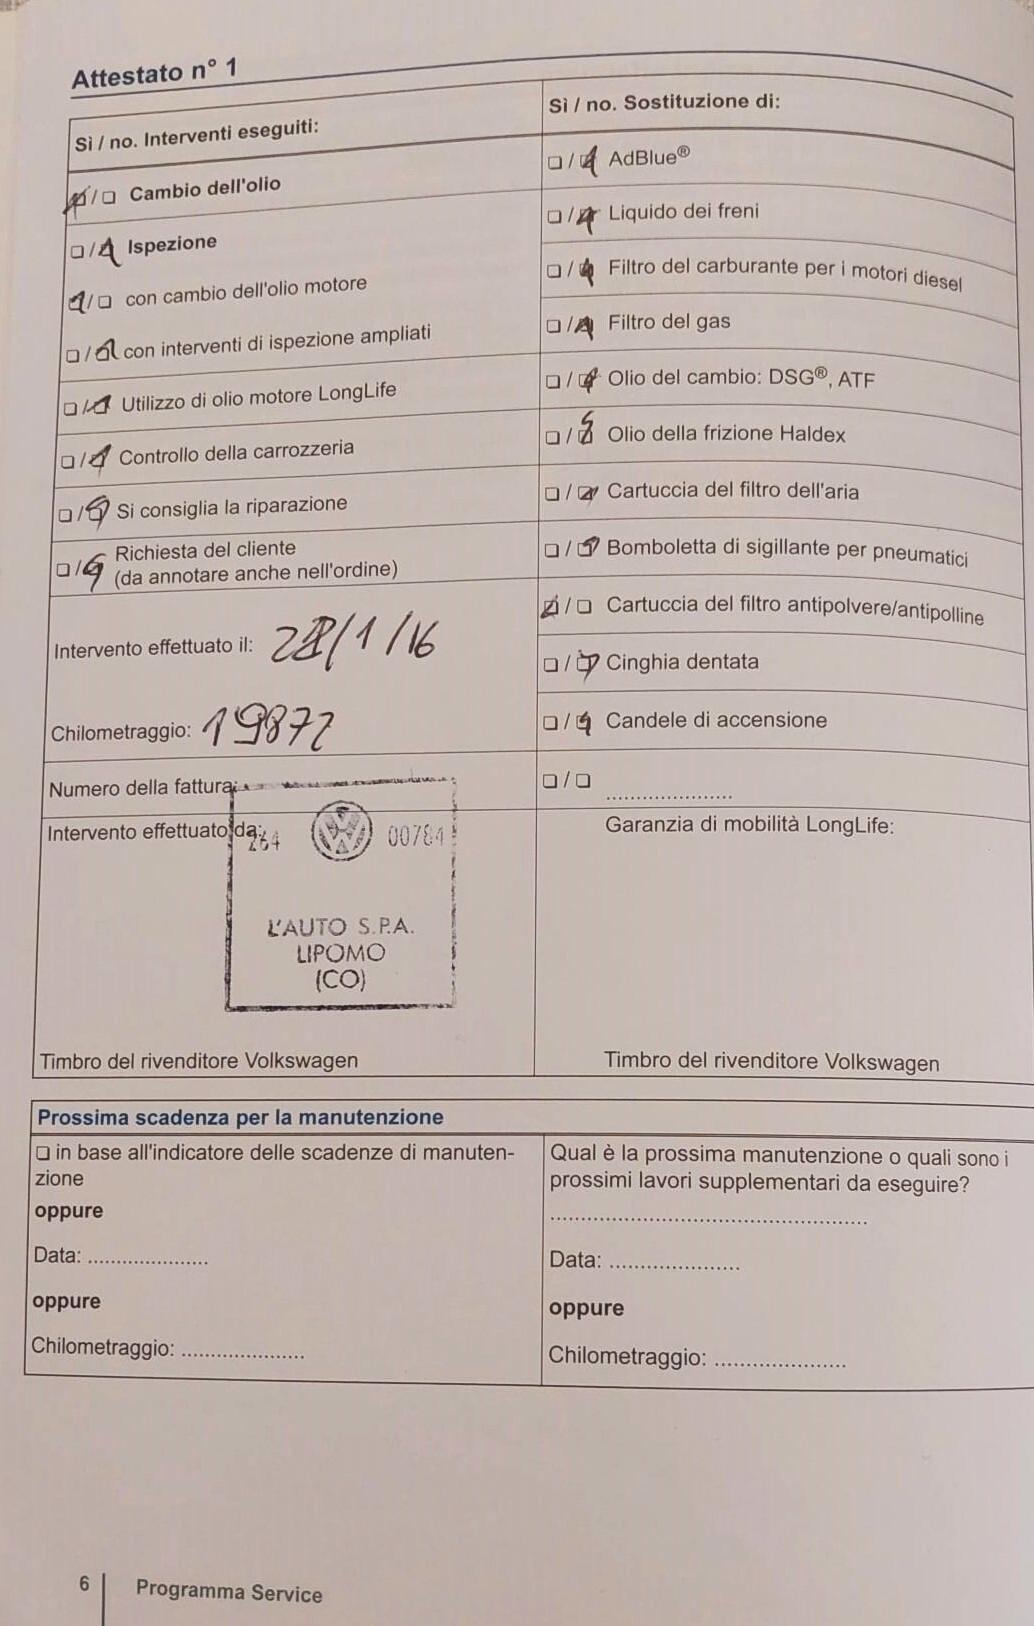 Attestato n° 1
Sì / no. Interventi eseguiti:
❏ / ❏ Cambio dell'olio
❏ / ❏ Ispezione
❏ / ❏ con cambio dell'olio motore
❏ / ❏ con interventi di ispezione ampliati
❏ / ❏ Utilizzo di olio motore LongLife
❏ / ❏ Controllo della carrozzeria
❏ / ❏ Si consiglia la riparazione
❏ / ❏ Richiesta del cliente
(da annotare anche nell'ordine)
Intervento effettuato il: /1/16
Chilometraggio: 19872
Numero della fattura:
Intervento effettuato da:
264 00784
L'AUTO S.P.A.
LIPOMO
(CO)
Timbro del rivenditore Volkswagen
Sì / no. Sostituzione di:
❏ / ❏ AdBlue®
❏ / ❏ Liquido dei freni
❏ / ❏ Filtro del carburante per i motori diesel
❏ / ❏ Filtro del gas
❏ / ❏ Olio del cambio: DSG®, ATF
❏ / ❏ Olio della frizione Haldex
❏ / ❏ Cartuccia del filtro dell'aria
❏ / ❏ Bomboletta di sigillante per pneumatici
❏ / ❏ Cartuccia del filtro antipolvere/antipolline
❏ / ❏ Cinghia dentata
❏ / ❏ Candele di accensione
❏ / ❏ .....................
Garanzia di mobilità LongLife:
Timbro del rivenditore Volkswagen
Prossima scadenza per la manutenzione
❏ in base all'indicatore delle scadenze di manuten-
zione
oppure
Data: ....................
oppure
Chilometraggio: ....................
Qual è la prossima manutenzione o quali sono i
prossimi lavori supplementari da eseguire?
....................................................
Data: .....................
oppure
Chilometraggio: .....................
6 Programma Service